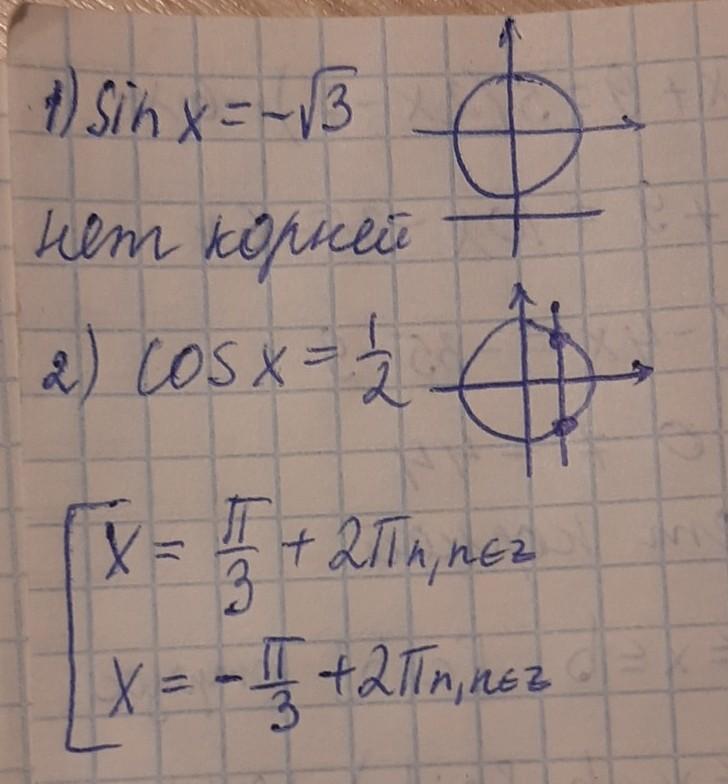 1) sin x = -√3
нет корней
2) cos x = 1/2
x = π/3 + 2πn, n∈z
x = -π/3 + 2πn, n∈z